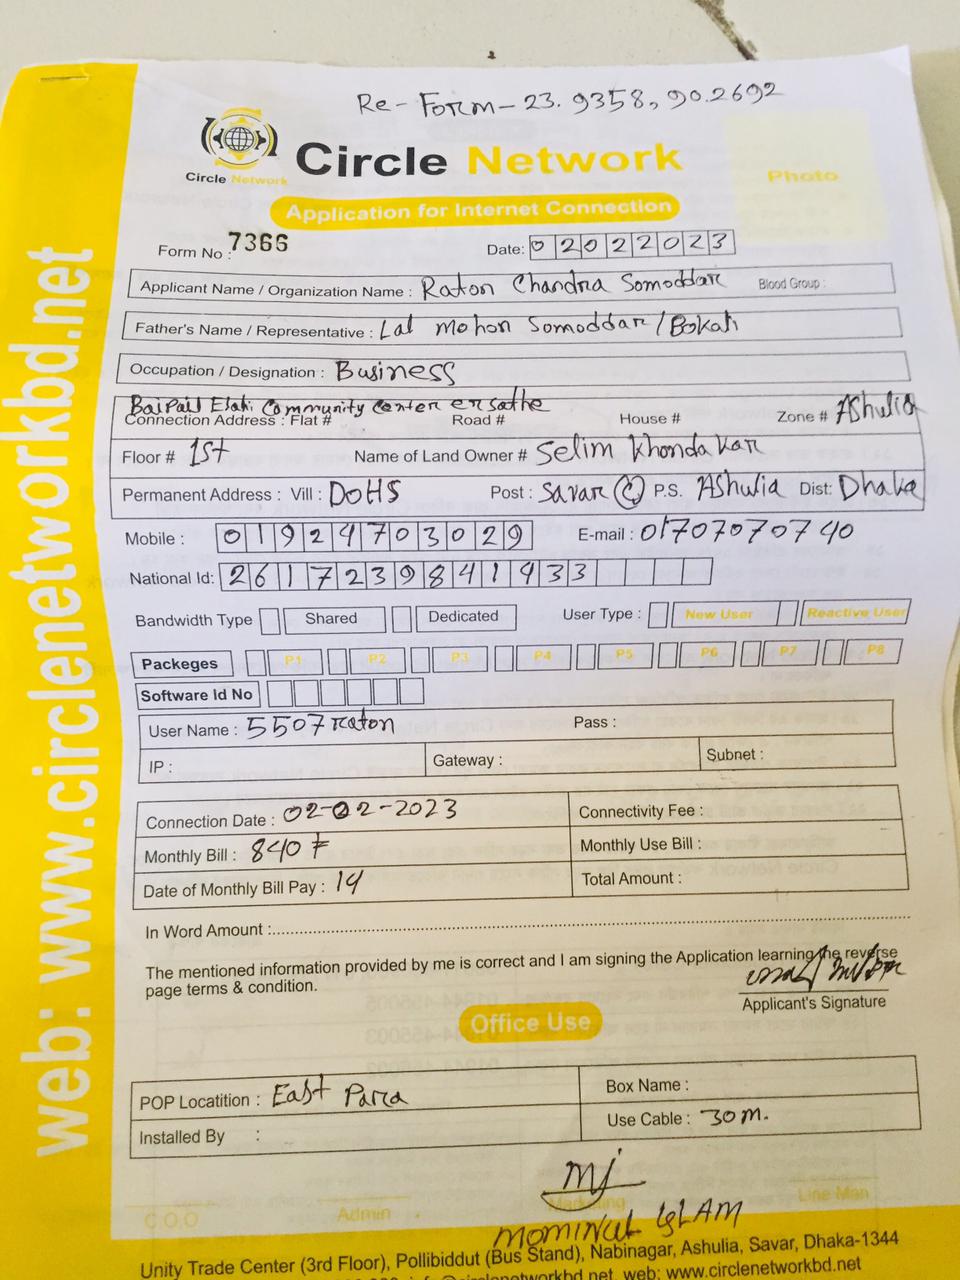 Re-Form-23.9358,90.2692
Circle Network
Circle Network
Photo
Application for Internet Connection
Form No : 7366
Date: 02022023
Applicant Name / Organization Name : Raton Chandra Somoddar Blood Group :
Father's Name / Representative : Lal mohon Somoddar/Bokati
Occupation / Designation : Business
BaiPail Elahi Community Center er sathe
Connection Address : Flat # Road # House # Zone # Ashulia
Floor # 1st Name of Land Owner # Selim Khondakar
Permanent Address : Vill : DOHS Post : Savar (C) P.S. Ashulia Dist: Dhaka
Mobile : 01924703029 E-mail : 01707070740
National Id: 2617239841933
Bandwidth Type Shared Dedicated User Type : New User Reactive User
Packeges P1 P2 P3 P4 P5 P6 P7 P8
Software Id No
User Name : 5507raton Pass :
IP : Gateway : Subnet :
Connection Date : 02-02-2023 Connectivity Fee :
Monthly Bill : 840 Monthly Use Bill :
Date of Monthly Bill Pay : 14 Total Amount :
In Word Amount :
The mentioned information provided by me is correct and I am signing the Application learning the reverse
page terms & condition.
Applicant's Signature
Office Use
POP Locatition : East Para Box Name :
Installed By : Use Cable : 30m.
C.O.O Admin Marketing Line Man
MOMINUL ISLAM
Unity Trade Center (3rd Floor), Pollibiddut (Bus Stand), Nabinagar, Ashulia, Savar, Dhaka-1344
@circlenetworkbd.net, web: www.circlenetworkbd.net
web: www.circlenetworkbd.net